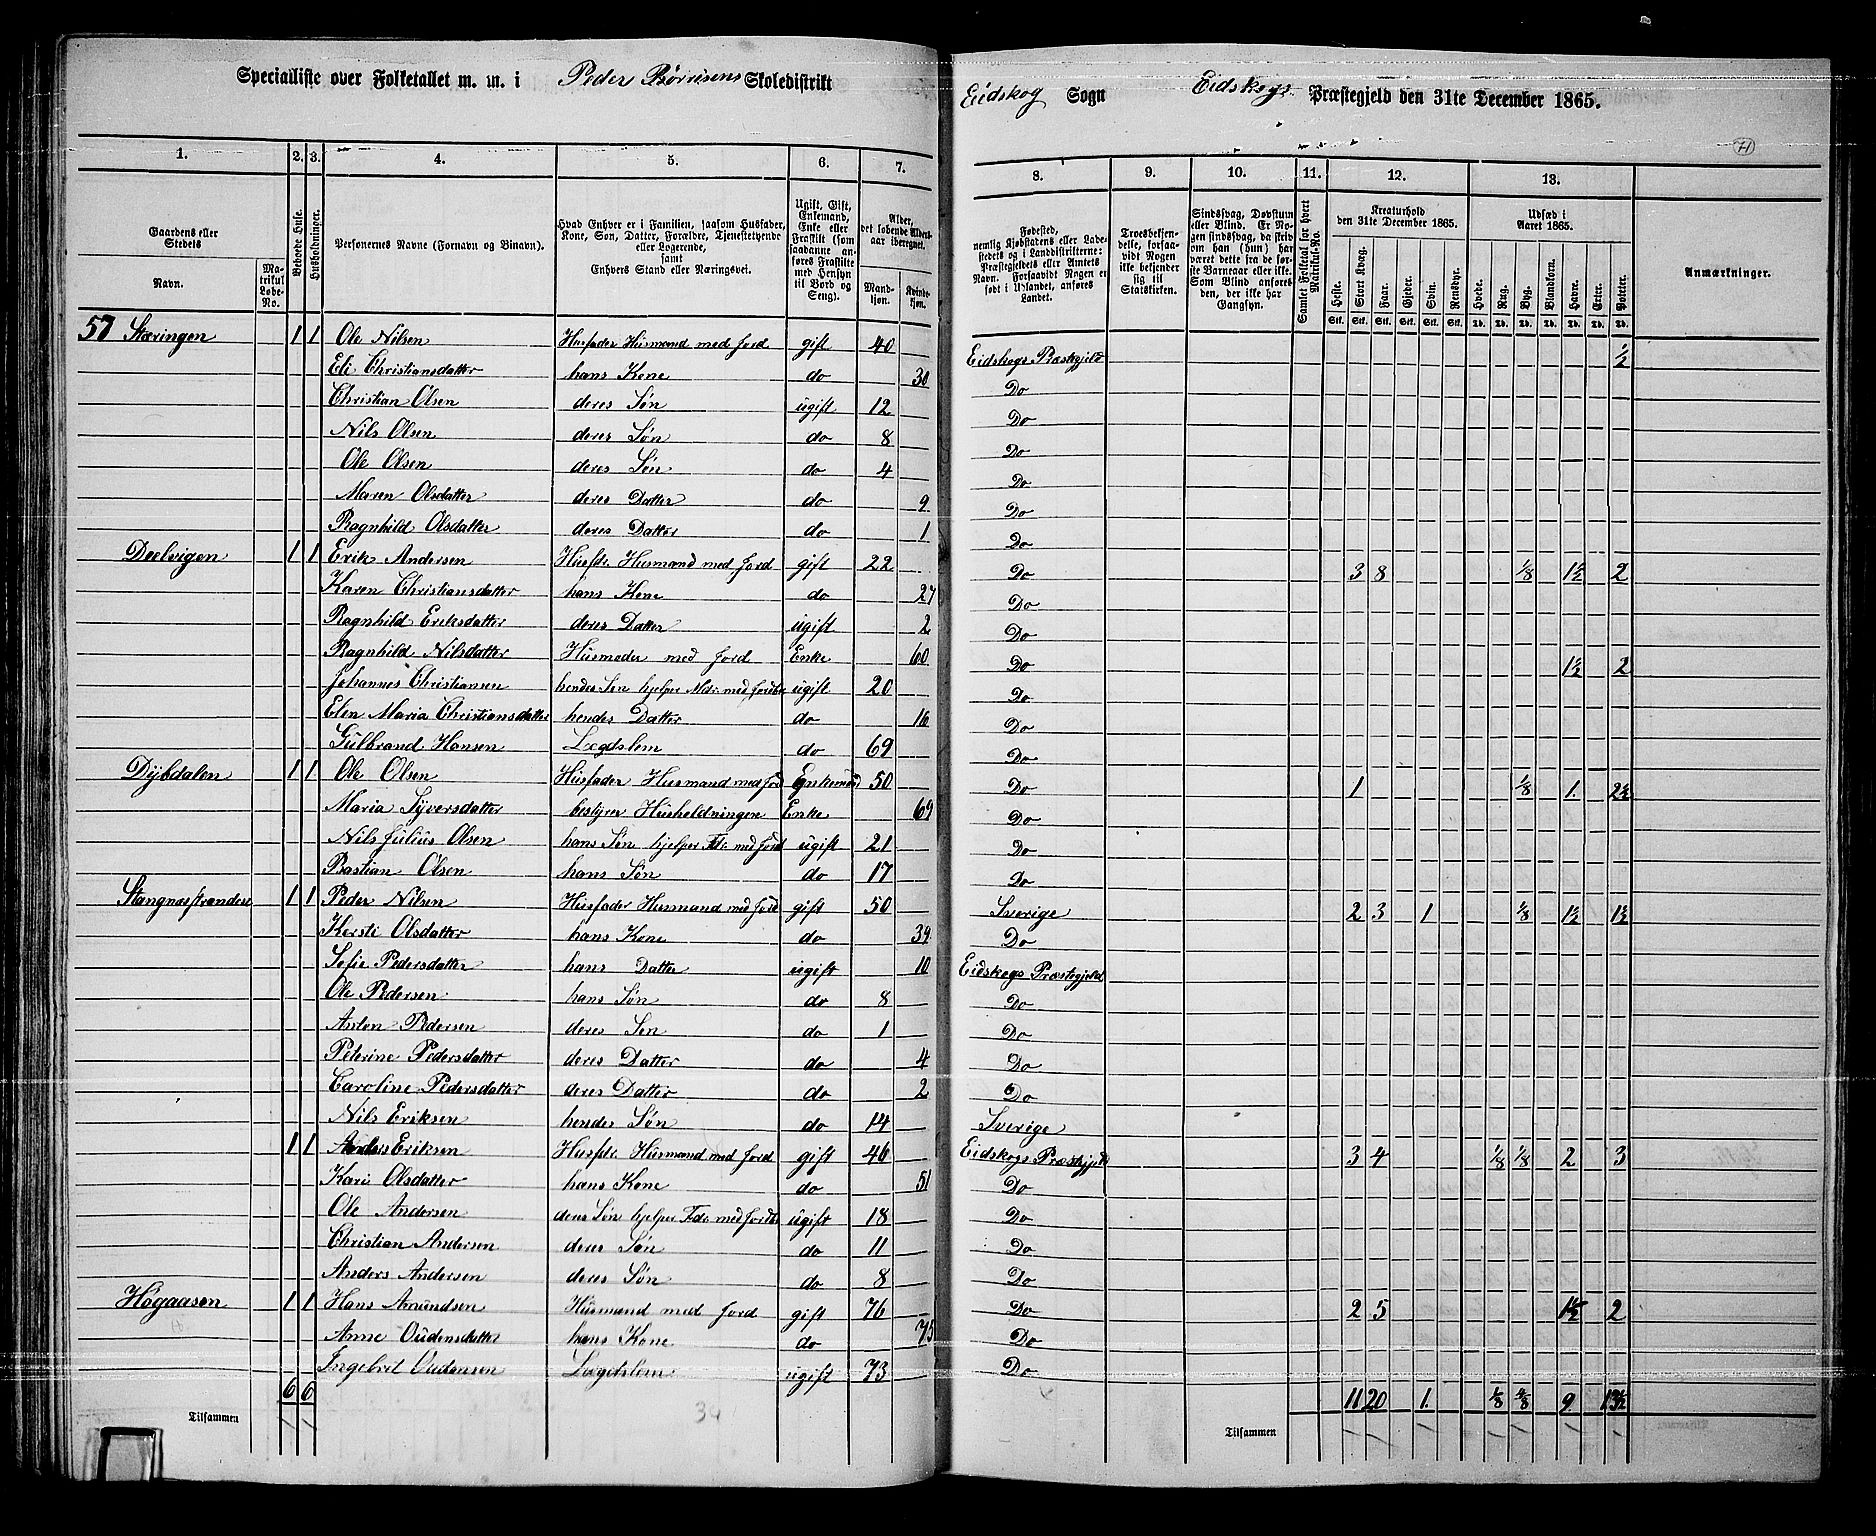 Specialliste over Folketallet m. m. i Peder Børrisens Skoledistrikt
Eidskog Sogn Eidskogs Præstegjeld den 31te December 1865.
71
1. 2. 3. 4. 5. 6. 7. 8. 9. 10. 11. 12. 13.
Gaardens eller Stedets
Navn.
Matrikul Løbe-No.
Beboede Huse.
Husholdninger.
Personernes Navne (Fornavn og Binavn).
Hvad Enhver er i Familien, saasom Husfader, Kone, Søn, Datter, Forældre, Tjenestetyende eller Logerende, samt Enhvers Stand eller Næringsvei.
Ugift, Gift, Enkemand, Enke eller Fraskilt (som saadanne anføres Fraskilte med Hensyn til Bord og Seng).
Alder, det løbende Alders-aar iberegnet.
Mandkjøn.
Kvindekjøn.
Fødested, nemlig Kjøbstadens eller Ladestedets og i Landdistrikterne: Præstegjeldets eller Amtets Navn. Forsaavidt Nogen er født i Udlandet, anføres Landet.
Troesbekjendelse, forsaavidt Nogen ikke bekjender sig til Statskirken.
Sindssvag, Døvstum eller Blind. Er Nogen sindssvag, da skriv om han (hun) har været dette fra de første Barneaar eller ikke. Som Blind anføres den, der ikke har Gangsyn.
Samlet Folketal for hvert Matrikul-No.
Kreaturhold den 31te December 1865.
Heste. Stort Kvæg. Faar. Gjeder. Svin. Rensdyr.
Stk. Stk. Stk. Stk. Stk. Stk.
Udsæd i Aaret 1865.
Hvede. Rug. Byg. Blandkorn. Havre. Erter. Poteter.
Td. Td. Td. Td. Td. Td. Td.
Anmærkninger.
57 Stæringen 1 1 Ole Nilsen Husfader Husmand med Jord gift 40 Eidskogs Præstegjeld ½
Eli Christiansdatter hans Kone do 30 Do
Christian Olsen deres Søn ugift 12 Do
Nils Olsen deres Søn do 8 Do
Ole Olsen deres Søn do 4 Do
Maren Olsdatter deres Datter do 9 Do
Ragnhild Olsdatter deres Datter do 1 Do
Dælvigen 1 1 Erik Andersen Husfdr. Husmand med Jord gift 22 Do 3 8 ⅛ 1½ 2
Karen Christiansdatter hans Kone do 27 Do
Ragnhild Eriksdatter deres Datter ugift 2 Do
Ragnhild Nilsdatter Husmoder med Jord Enke 60 Do 1½ 2
Johannes Christiansen hendes Søn hjelper Mdr. med Jordbr ugift 20 Do
Elen Maria Christiansdatter hendes Datter do 16 Do
Gulbrand Hansen Lægdslem do 69 Do
Dybdalen 1 1 Ole Olsen Husfader Husmand med Jord Enkemand 50 Do 1 ⅛ 1 2½
Maria Syversdatter bestyrer Husholdningen Enke 69 Do
Nils Julius Olsen hans Søn hjelper Fdr. med Jord ugift 21 Do
Bastian Olsen hans Søn do 17 Do
Stangnæsstranden 1 1 Peder Nilsen Husfader Husmand med Jord gift 50 Sverige 2 3 1 ⅛ 1½ 1½
Kersti Olsdatter hans Kone do 39 Do
Sofie Pedersdatter hans Datter ugift 10 Eidskogs Præstegjeld
Ole Pedersen hans Søn do 8 Do
Anton Pedersen deres Søn do 1 Do
Peterine Pedersdatter deres Datter do 4 Do
Caroline Pedersdatter deres Datter do 2 Do
Nils Eriksen hendes Søn do 14 Sverige
1 1 Anders Eriksen Husfdr. Husmand med Jord gift 46 Eidskogs Præstegjeld 3 4 ⅛ ⅛ 2 3
Kari Olsdatter hans Kone do 51 Do
Ole Andersen deres Søn hjelper Fdr. med Jordbr ugift 18 Do
Christian Andersen deres Søn do 11 Do
Anders Andersen deres Søn do 8 Do
Høgaasen 1 1 Hans Amundsen Husmand med Jord gift 76 Do 2 5 1½ 2
Anne Oudensdatter hans Kone do 75 Do
Ingebret Oudensen Lægdslem ugift 73 Do
6 6 11 20 1 ⅛ 4/8 9 13½
Tilsammen 34 Tilsammen